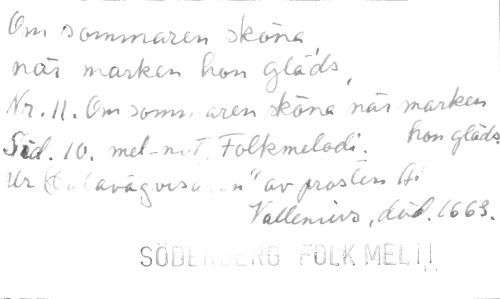 Om sommaren sköna
när marken hon gläds,
Nr. 11. Om sommaren sköna när marken
hon gläds.
Sid. 10. mel-not. Folkmelodi.
Ur " av prosten
Vallenius, död. 1663.
SÖDERBERG FOLKMEL